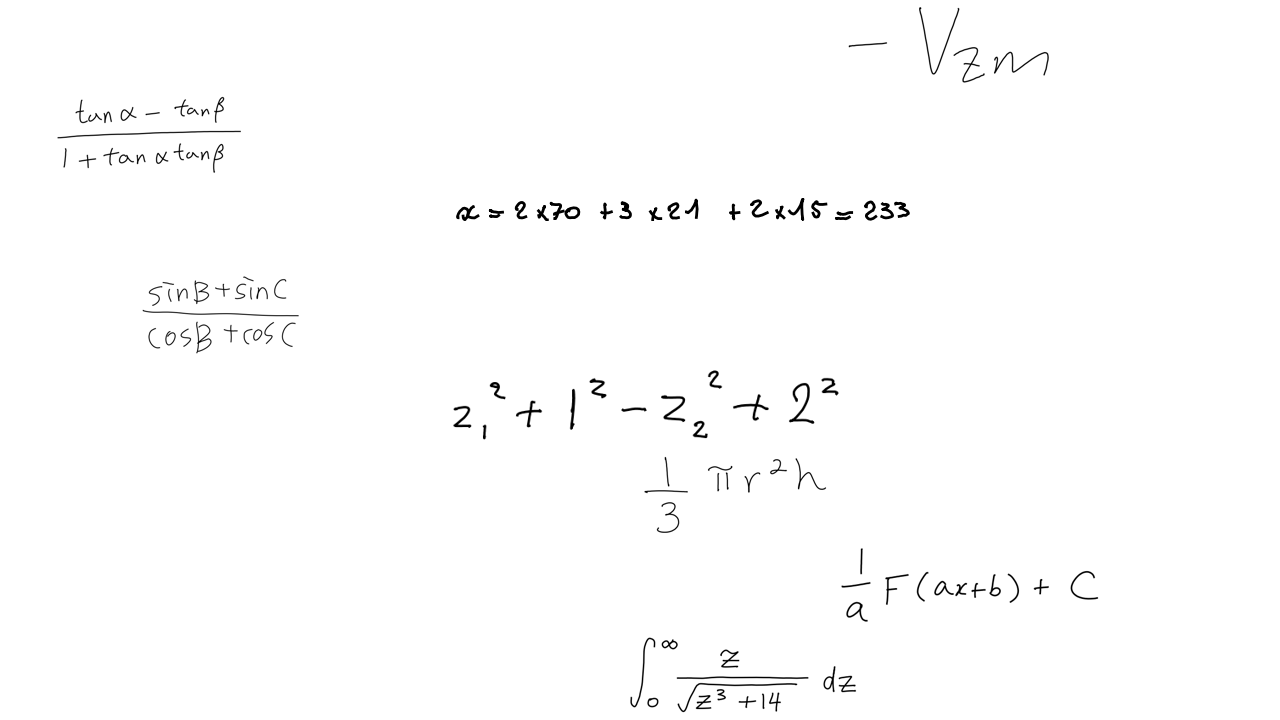 $- V_{zm}$
$\frac{\tan \alpha - \tan \beta}{1 + \tan \alpha \tan \beta}$
$x = 2 \times 70 + 3 \times 21 + 2 \times 15 = 233$
$\frac{\sin B + \sin C}{\cos B + \cos C}$
$z_1^2 + 1^2 - z_2^2 + 2^2$
$\frac{1}{3} \pi r^2 h$
$\frac{1}{a} F(ax+b) + C$
$\int_0^\infty \frac{z}{\sqrt{z^3 + 14}} dz$